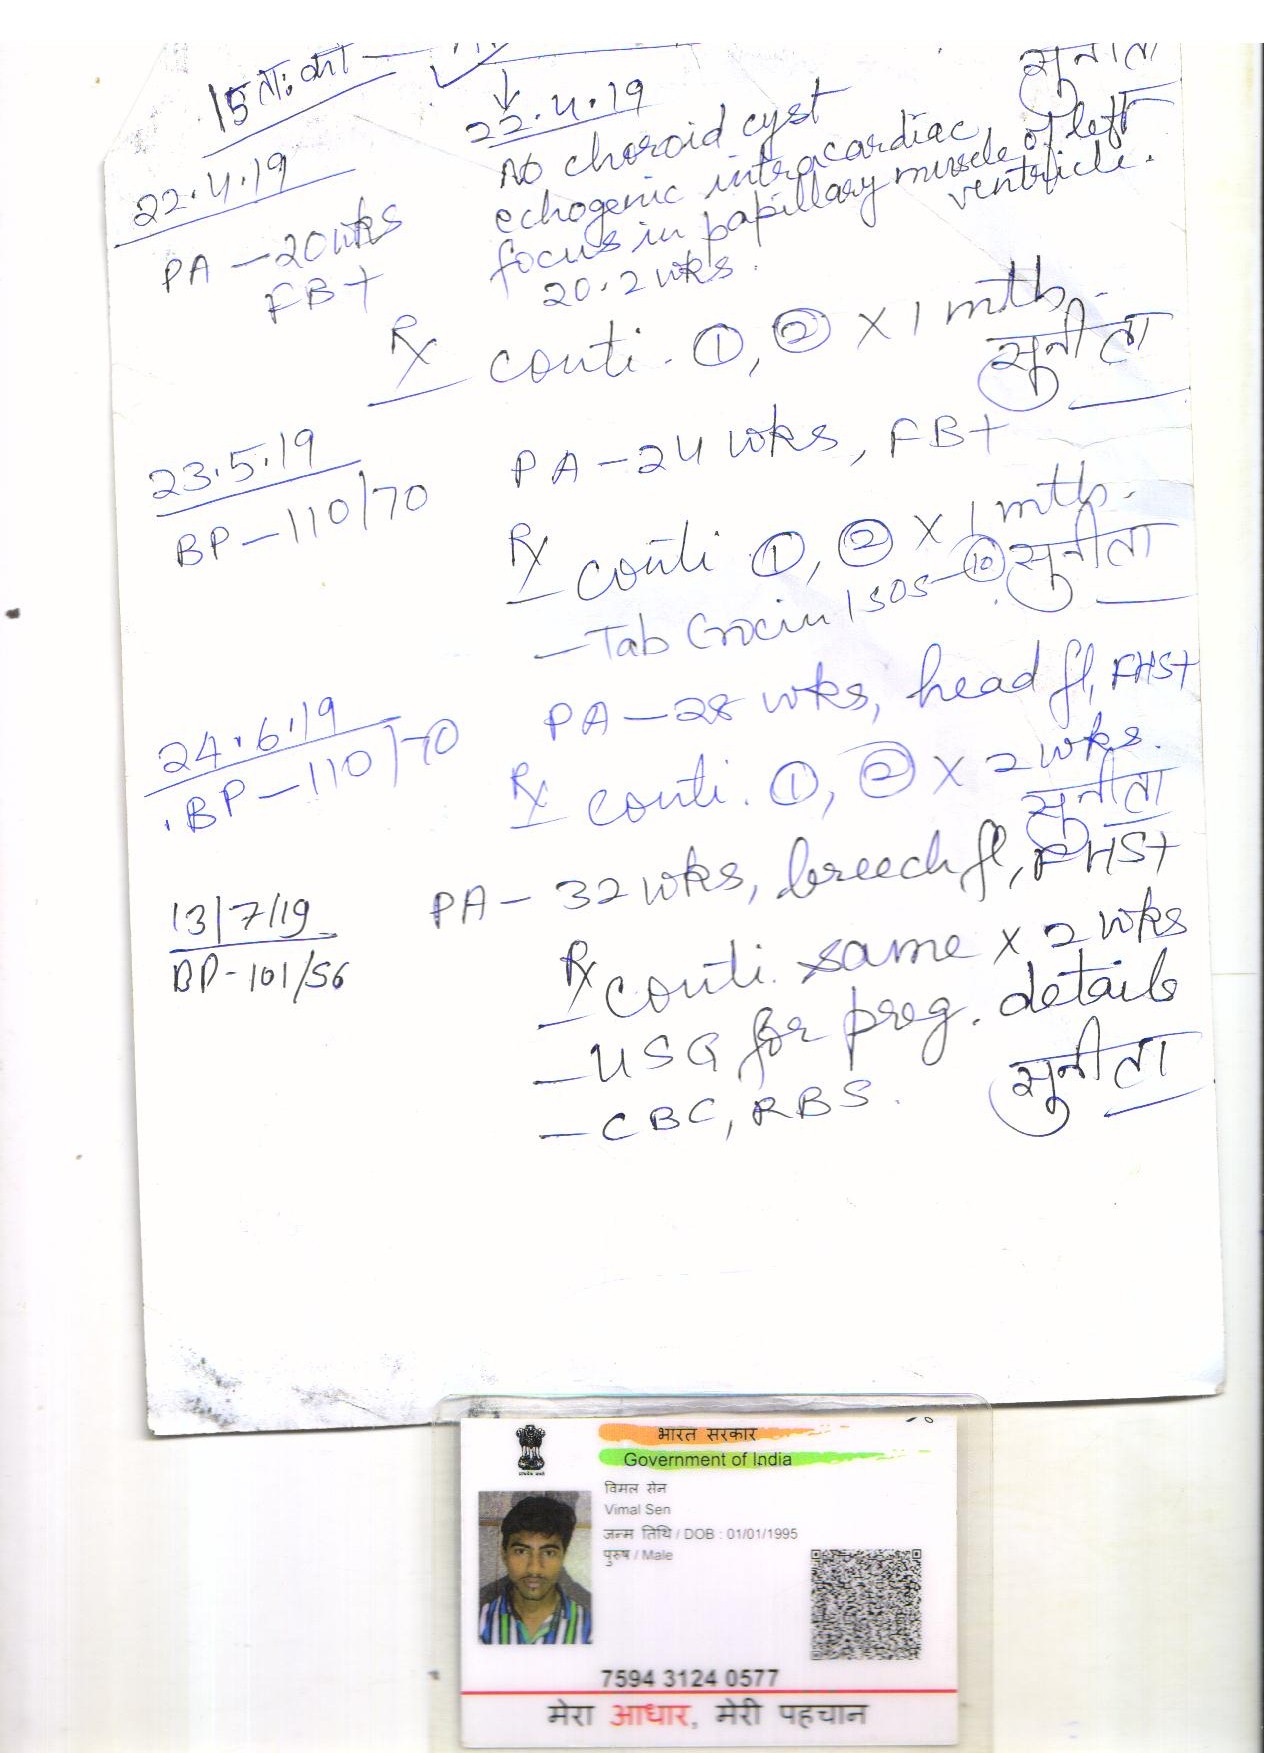 15 ता: का —
सुनीता
22.4.19
22.4.19
No choroid cyst
echogenic intracardiac
focus in papillary muscle of left
ventricle.
20.2 wks.
PA - 20 wks
FB+
Rx conti. ①, ② x 1 mth.
सुनीता
23.5.19
BP - 110/70
PA - 24 wks, FB+
Rx conti ①, ② x 1 mth.
- Tab Crocin 1 SOS - ⑩
सुनीता
24.6.19
BP - 110/70
PA - 28 wks, head fl, FHS+
Rx conti. ①, ② x 2 wks.
सुनीता
13/7/19
BP - 101/56
PA - 32 wks, breech fl, FHS+
Rx conti. same x 2 wks
- USG for preg. details
- CBC, RBS.
सुनीता
भारत सरकार
Government of India
विमल सेन
Vimal Sen
जन्म तिथि / DOB : 01/01/1995
पुरुष / Male
7594 3124 0577
मेरा आधार, मेरी पहचान